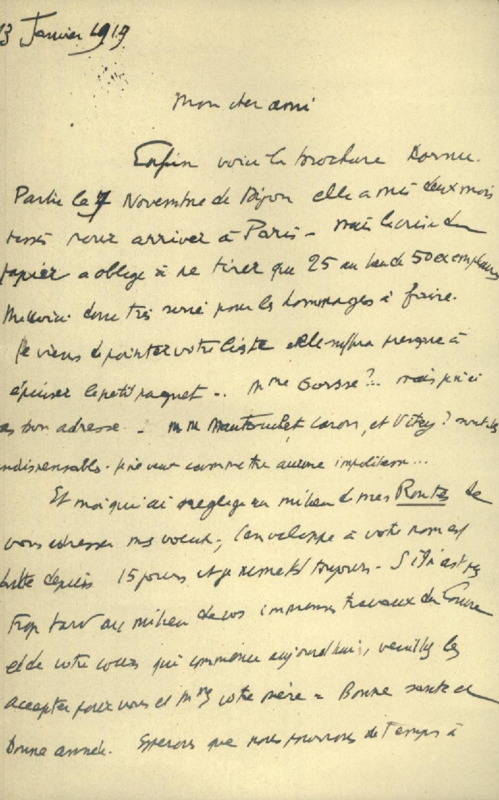 13 Janvier 1919
Mon cher ami
Enfin voici la brochure Dornu.
Partie le 7 Novembre de Dijon elle a mis deux mois
pour arriver à Paris – mais la crise du
papier a obligé à ne tirer que 25 au lieu de 50 exemplaires
Me voici donc très serré pour les hommages à faire.
Je viens de pointer votre liste elle suffira presque à
épuiser le petit paquet .. Mme Gorsse ?.. mais je n'ai
pas son adresse. – MM Caron, et Vitry ? sont-ils
indispensables. je ne veux commettre aucune impolitesse...
Et moi qui ai négligé au milieu de mes Routes de
vous adresser mes voeux ; l'enveloppe à votre nom est
faite depuis 15 jours et je remets toujours – S'il n'est pas
trop tard au milieu de vos immenses travaux du Louvre
et de votre cours qui commence aujourd'hui, veuillez les
accepter pour vous et Mme votre mère = Bonne santé et
Bonne année. Espérons que nous pourrons de temps à